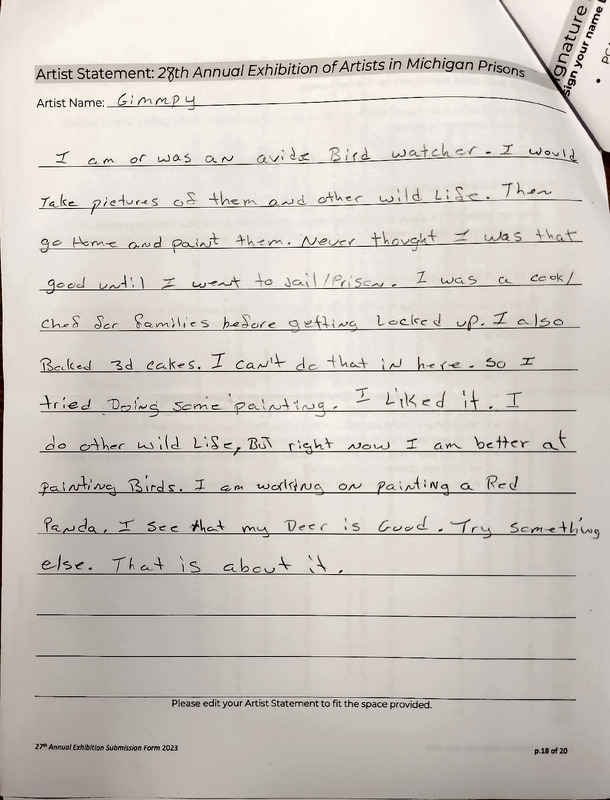 ignature
sign your name
Artist Statement: 27th Annual Exhibition of Artists in Michigan Prisons
Artist Name: Gimmpy
I am or was an avide Bird watcher. I would
Take pictures of them and other wild Life. Then
go Home and paint them. Never thought I was that
good until I went to Jail/Prison. I was a cook/
chef for families before getting Locked up. I also
Baked 3d cakes. I can't do that in here. So I
tried Doing some painting. I Liked it. I
do other wild Life, BuT right now I am better at
painting Birds. I am working on painting a Red
Panda. I see that my Deer is Good. Try something
else. That is about it.
Please edit your Artist Statement to fit the space provided.
27th Annual Exhibition Submission Form 2023
p.18 of 20